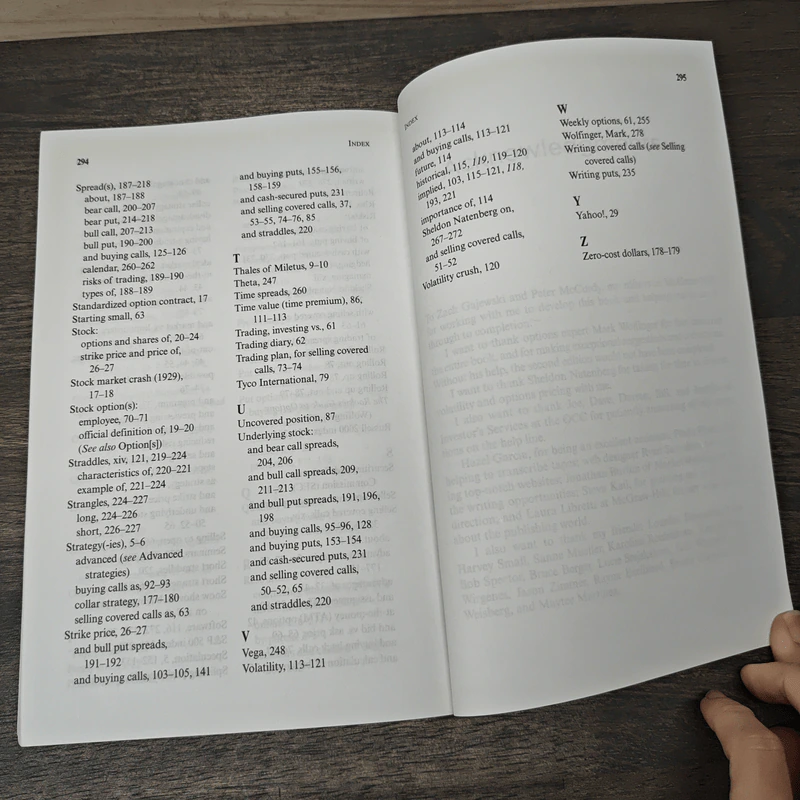 294
INDEX
Spread(s), 187–218
about, 187–188
bear call, 200–207
bear put, 214–218
bull call, 207–213
bull put, 190–200
and buying calls, 125–126
calendar, 260–262
risks of trading, 189–190
types of, 188–189
Standardized option contract, 17
Starting small, 63
Stock:
options and shares of, 20–24
strike price and price of,
26–27
Stock market crash (1929),
17–18
Stock option(s):
employee, 70–71
official definition of, 19–20
(See also Option[s])
Straddles, xiv, 121, 219–224
characteristics of, 220–221
example of, 221–224
Strangles, 224–227
long, 224–226
short, 226–227
Strategy(-ies), 5–6
advanced (see Advanced
strategies)
buying calls as, 92–93
collar strategy, 177–180
selling covered calls as, 63
Strike price, 26–27
and bull put spreads,
191–192
and buying calls, 103–105, 141
and buying puts, 155–156,
158–159
and cash-secured puts, 231
and selling covered calls, 37,
53–55, 74–76, 85
and straddles, 220
T
Thales of Miletus, 9–10
Theta, 247
Time spreads, 260
Time value (time premium), 86,
111–113
Trading, investing vs., 61
Trading diary, 62
Trading plan, for selling covered
calls, 73–74
Tyco International, 79
U
Uncovered position, 87
Underlying stock:
and bear call spreads,
204, 206
and bull call spreads, 209,
211–213
and bull put spreads, 191, 196,
198
and buying calls, 95–96, 128
and buying puts, 153–154
and cash-secured puts, 231
and selling covered calls,
50–52, 65
and straddles, 220
V
Vega, 248
Volatility, 113–121
INDEX
295
about, 113–114
and buying calls, 113–121
future, 114
historical, 115, 119, 119–120
implied, 103, 115–121, 118,
193, 221
importance of, 114
Sheldon Natenberg on,
267–272
and selling covered calls,
51–52
Volatility crush, 120
W
Weekly options, 61, 255
Wolfinger, Mark, 278
Writing covered calls (see Selling
covered calls)
Writing puts, 235
Y
Yahoo!, 29
Z
Zero-cost dollars, 178–179